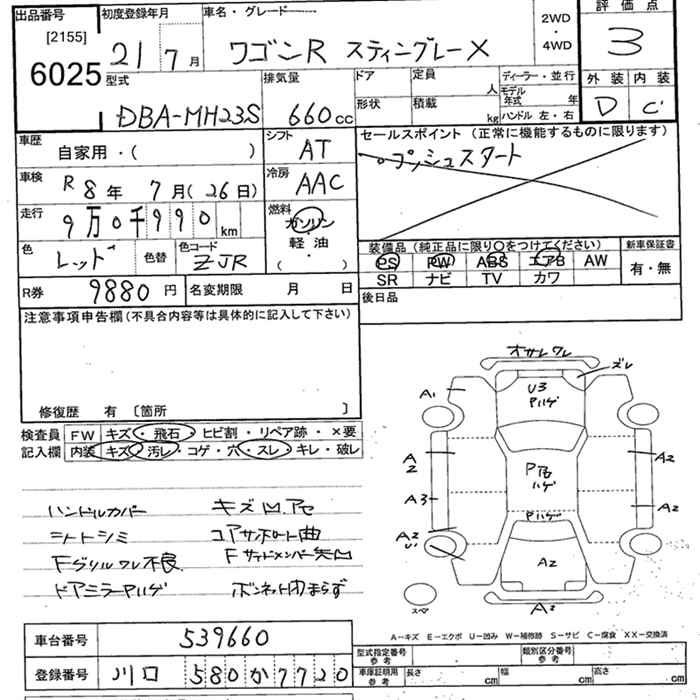 出品番号 [2155] 6025
初度登録年月 21年 7月
車名・グレード ワゴンR スティングレーX
2WD・4WD
評価点 3
型式 DBA-MH23S
排気量 660cc
ドア 定員 人
形状 積載 kg
ディーラー・並行
モデル年式 年
ハンドル 左・右
外装 内装
D C
車歴 自家用・( )
シフト AT
セールスポイント (正常に機能するものに限ります)
・プッシュスタート
車検 R8年 7月(26日)
冷房 AAC
走行 9万0千990km
燃料 ガソリン
軽油
( ・ )
色 レッド 色替 色コード ZJR
装備品 (純正品に限り○をつけてください) 新車保証書
PS PW ABS エアB AW 有・無
SR ナビ TV カワ
R券 9880円 名変期限 月 日
後日品
注意事項申告欄 (不具合内容等は具体的に記入して下さい)
修復歴 有 〔箇所 〕
検査員 FW キズ・飛石・ヒビ割・リペア跡・×要
記入欄 内装 キズ・汚レ・コゲ・穴・スレ・キレ・破レ
ハンドルカバー キズ凹アセ
シートシミ コアサポート曲
Fグリルワレ不良 Fサイドメンバー先凹
ドアミラーPハゲ ボンネット閉まらず
オサレワレ
ズレ
U3
Pハゲ
A1
A2
A2
A3
A2
A2
Pハゲ
A2
A2
スペア
A-キズ E-エクボ U-凹み W-補修跡 S-サビ C-腐食 XX-交換済
車台番号 539660
型式指定番号 参考 類別区分番号 参考
登録番号 川口 580 か 7720
車庫証明用 参考 長さ cm 幅 cm 高さ cm